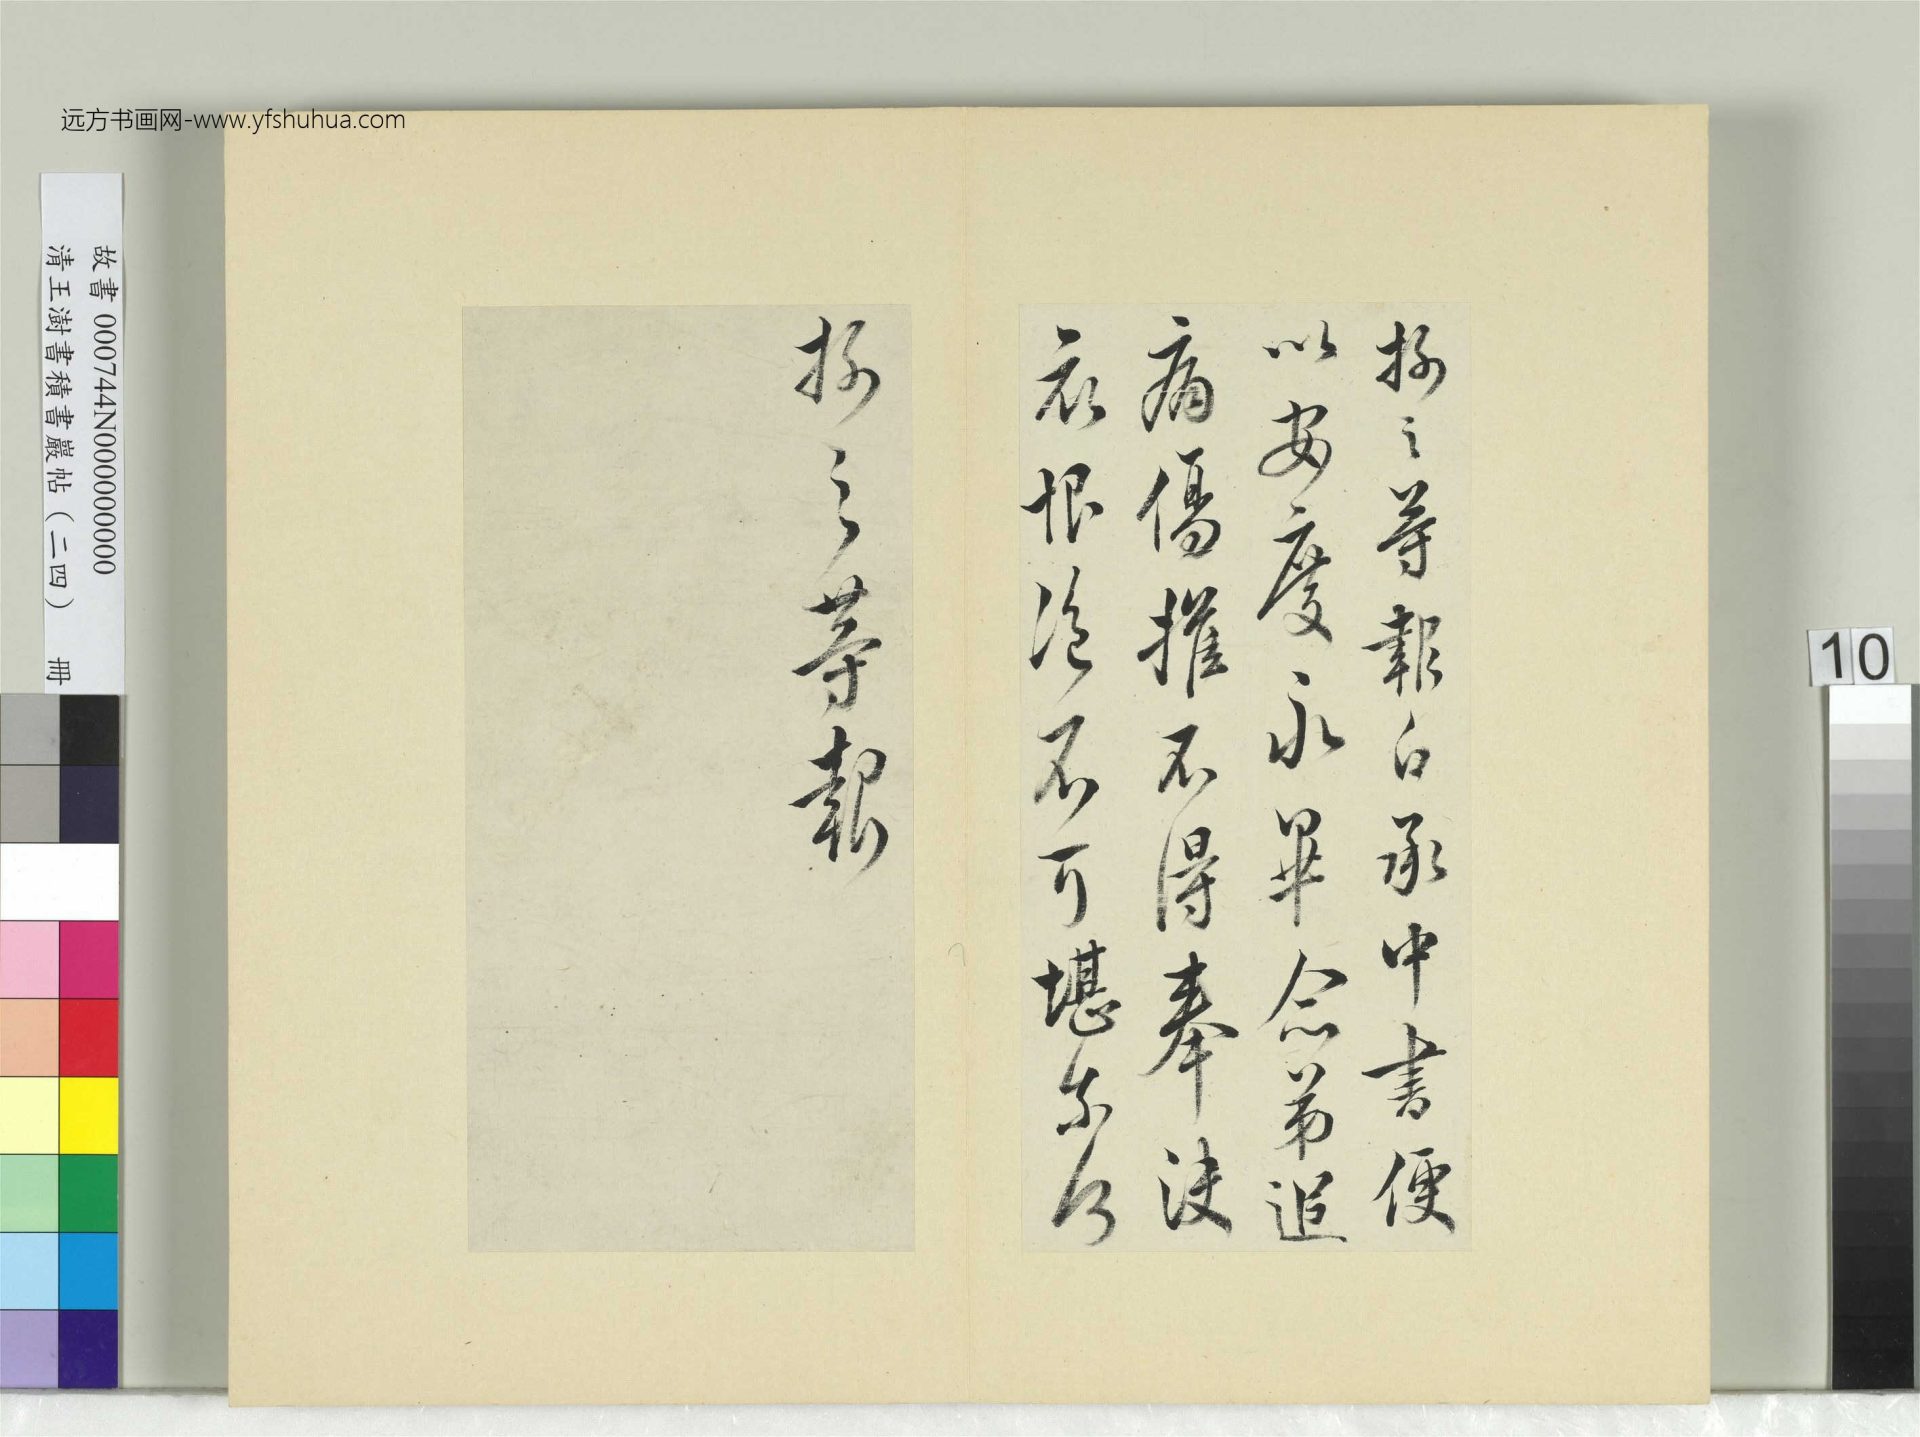 之等報白承中書便
以安厝永畢念弟追
痛傷摧不得奉決
哀恨深不可堪柰何
之等報
远方书画网-www.yfshuhua.com
故書 000744N000000000
清王澍書積書巖帖（二四） 冊
10